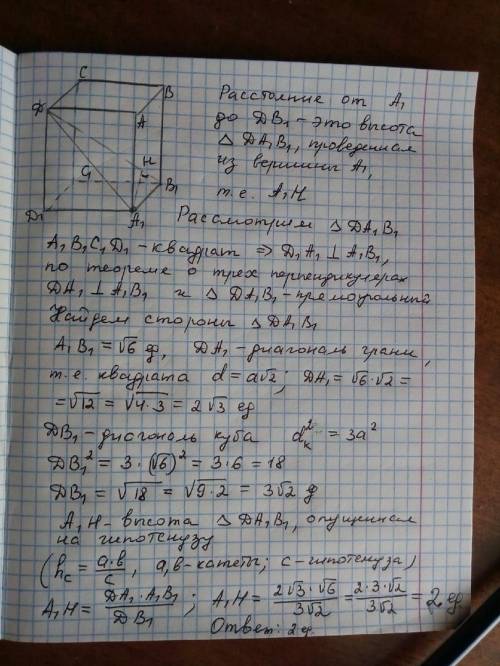 C
B
D
A
H
C₁
B₁
D₁
A₁
Расстояние от A₁
до DB₁ - это высота
△ DA₁B₁, проведенная
из вершины A₁,
т.е. A₁H
Рассмотрим △ DA₁B₁
A₁B₁C₁D₁ - квадрат ⇒ D₁A₁ ⊥ A₁B₁,
по теореме о трех перпендикулярах
DA₁ ⊥ A₁B₁ и △ DA₁B₁ - прямоугольный
Найдем стороны △ DA₁B₁
A₁B₁ = √6 ед, DA₁ - диагональ грани,
т.е. квадрата d = a√2; DA₁ = √6·√2 =
= √12 = √4·3 = 2√3 ед
DB₁ - диагональ куба dₖ² = 3a²
DB₁² = 3·(√6)² = 3·6 = 18
DB₁ = √18 = √9·2 = 3√2 ед
A₁H - высота △ DA₁B₁, опущенная
на гипотенузу
(h_c = a·b/c, a,b - катеты; c - гипотенуза)
A₁H = DA₁·A₁B₁/DB₁; A₁H = 2√3·√6/3√2 = 2·3·√2/3√2 = 2 ед.
Ответ: 2 ед.